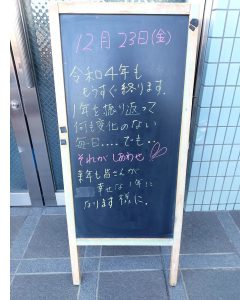 12月23日(金)
令和4年も
もうすぐ終ります.
1年を振り返って
何も変化のない
毎日....でも..
それがしあわせ
来年も皆さんが
幸せな1年に
なります様に.